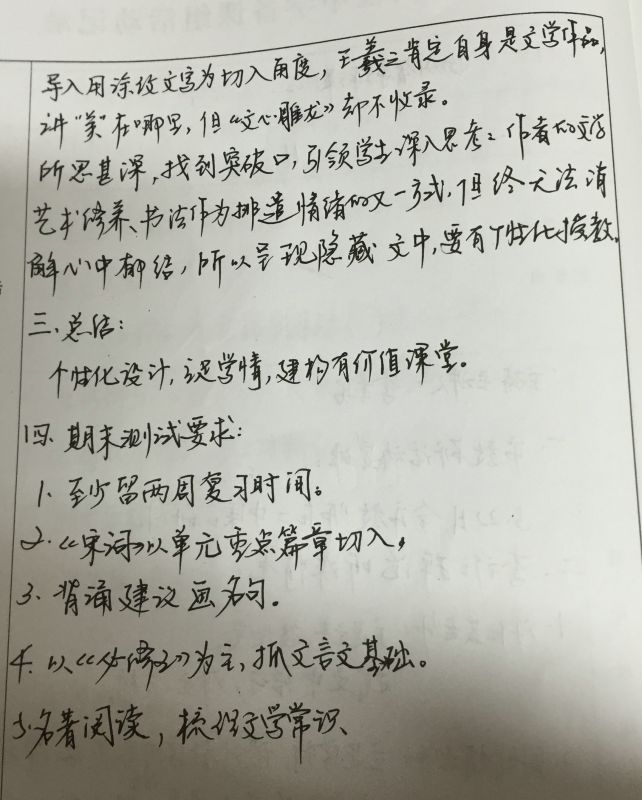 导入用涂改文字为切入角度，王羲之肯定自身是文学作品，
讲“美”在哪里，但《文心雕龙》却不收录。
所思甚深，找到突破口，引领学生深入思考：作者的文学
艺术修养、书法作为排遣情绪的又一方式，但终无法消
解心中郁结，所以呈现隐藏文中，要有个性化授教。
三、总结：
个性化设计，立足学情，建构有价值课堂。
四、期末测试要求：
1、至少留两周复习时间。
2.《宋词》以单元重点篇章切入，
3、背诵建议画名句。
4、以《必修》为主，抓文言文基础。
5、名著阅读，梳理文学常识、